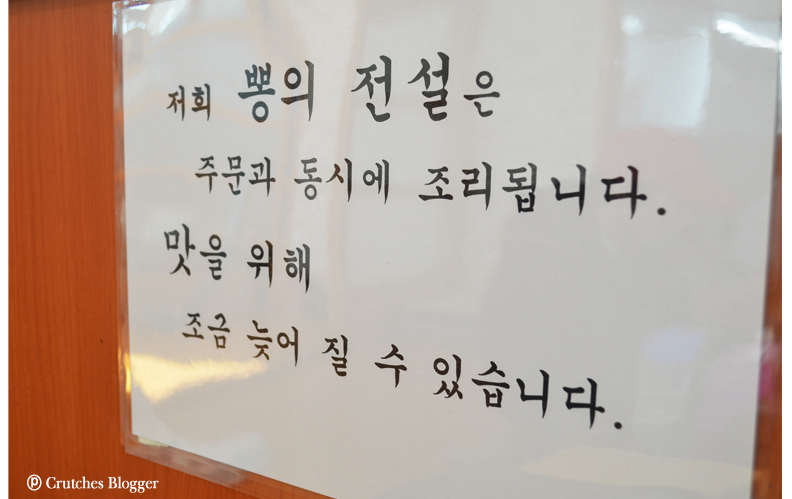 저희 뽕의 전설은
주문과 동시에 조리됩니다.
맛을 위해
조금 늦어 질 수 있습니다.
Crutches Blogger